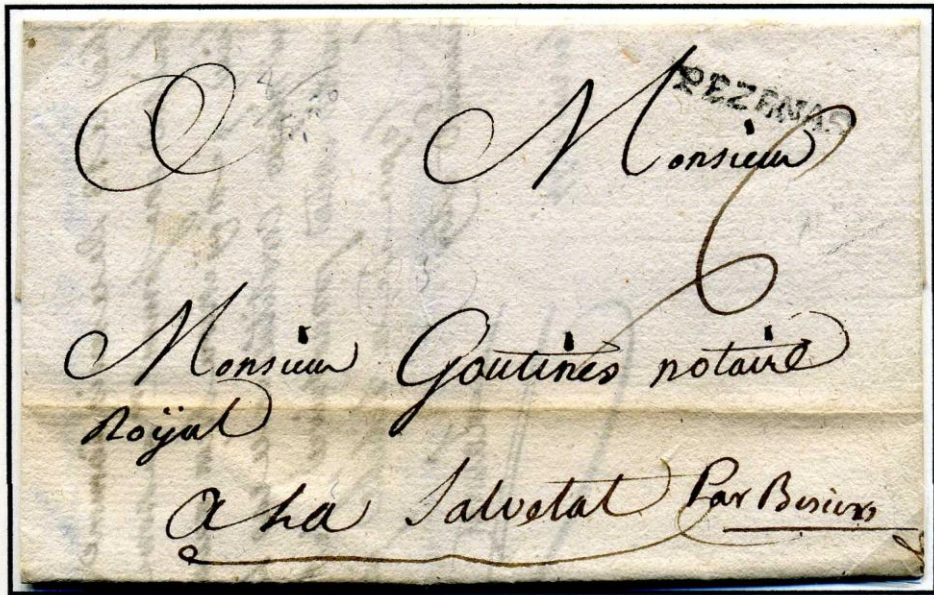 PEZENAS
A Monsieur
6
Monsieur Goutinès notaire
Royal
a La Salvetat Par Besiers